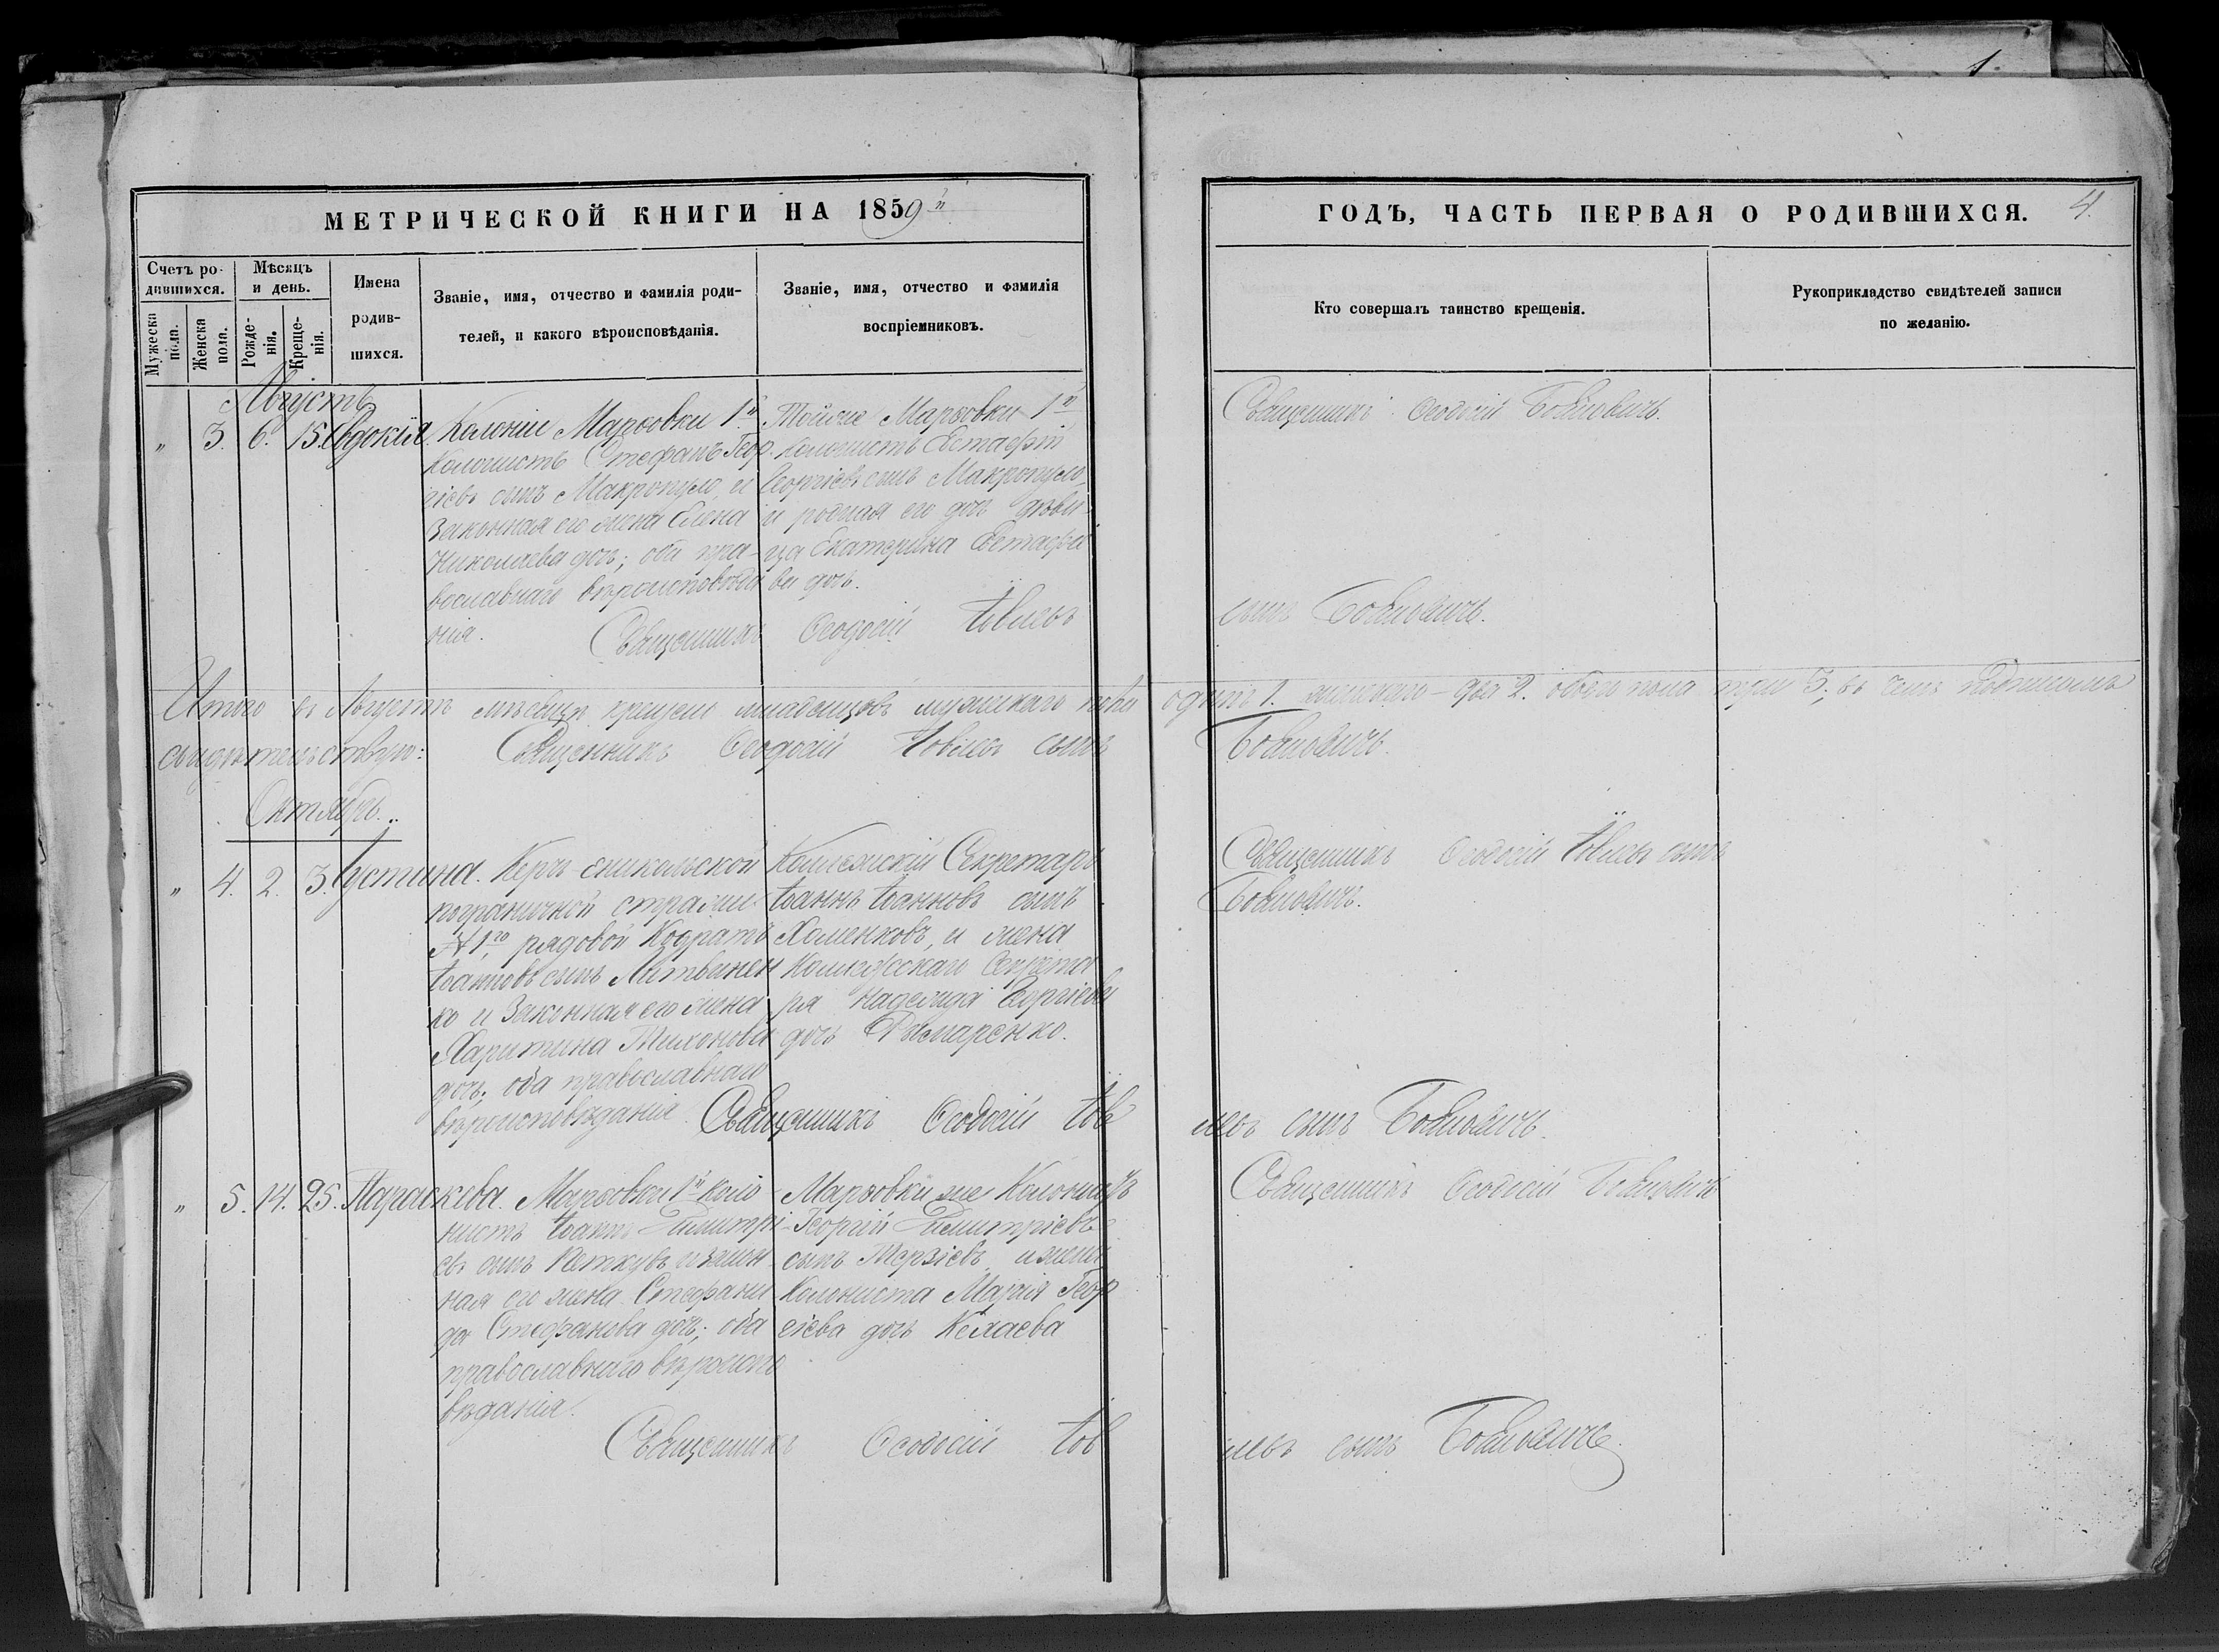 1.
МЕТРИЧЕСКОЙ КНИГИ НА 1859й
Счетъ родившихся.
Мужеска пола.
Женска пола.
Мѣсяцъ и день.
Рожденія.
Крещенія.
Имена родившихся.
Званіе, имя, отчество и фамилія родителей, и какого вѣроисповѣданія.
Званіе, имя, отчество и фамилія воспріемниковъ.
ГОДЪ, ЧАСТЬ ПЕРВАЯ О РОДИВШИХСЯ. 4.
Кто совершалъ таинство крещенія.
Рукоприкладство свидѣтелей записи
по желанію.
Августъ
" 3. 6. 15. Евдокія.
Колоніи Марѳовки 1й
Колонистъ Стефанъ Геор
гіевъ сынъ Макропуло, и
Законная его жена Елена
Николаева дочь; оба пра-
вославнаго вѣроисповѣда
нія.
Тойже Марѳовки 1й
колонистъ Евстафій
Георгіевъ сынъ Макропуло,
и родная его дочь дѣви-
ца Екатерина Евстафіе
ва дочь.
Священникъ Ѳеодосій
Священникъ Ѳеодосій Іовлевъ
сынъ
Итого въ Августѣ мѣсяцѣ крещено младенцовъ мужескаго пола одинъ 1. женскаго – два 2. обоего пола три 3; въ чемъ
свидѣтельствую: Священникъ Ѳеодосій Іовлевъ сынъ
Октябрь.
" 4. 2. 3. Іустина.
Керчь-Еникольской
пограничной стражи
№ 1го, рядовой Кодратъ
Іоанновъ сынъ Литвинен
ко и Законная его жена
Харитина Тихонова
дочь; оба православнаго
вѣроисповѣданія
Коллежскій Секретарь
Іоаннъ Іоанновъ сынъ
Хоменковъ, и жена
Коллежскаго Секрета
ря Надежда Георгіева
дочь
Священникъ Ѳеодосій Іовлевъ сынъ
Священникъ Ѳеодосій Іов
левъ сынъ
" 5. 14. 25. Параскева.
Марѳовки 1й коло
нистъ Іоаннъ Димитрі
евъ сынъ Петковъ и закон
ная его жена Стефани
да Стефанова дочь; оба
православнаго вѣроиспо
вѣданія.
Марѳовки же Колонистъ
Георгій Димитріевъ
сынъ Терзіевъ и жена
Колониста Марія Геор
гіева дочь Келаева
Священникъ Ѳеодосій
Священникъ Ѳеодосій Іов
левъ сынъ